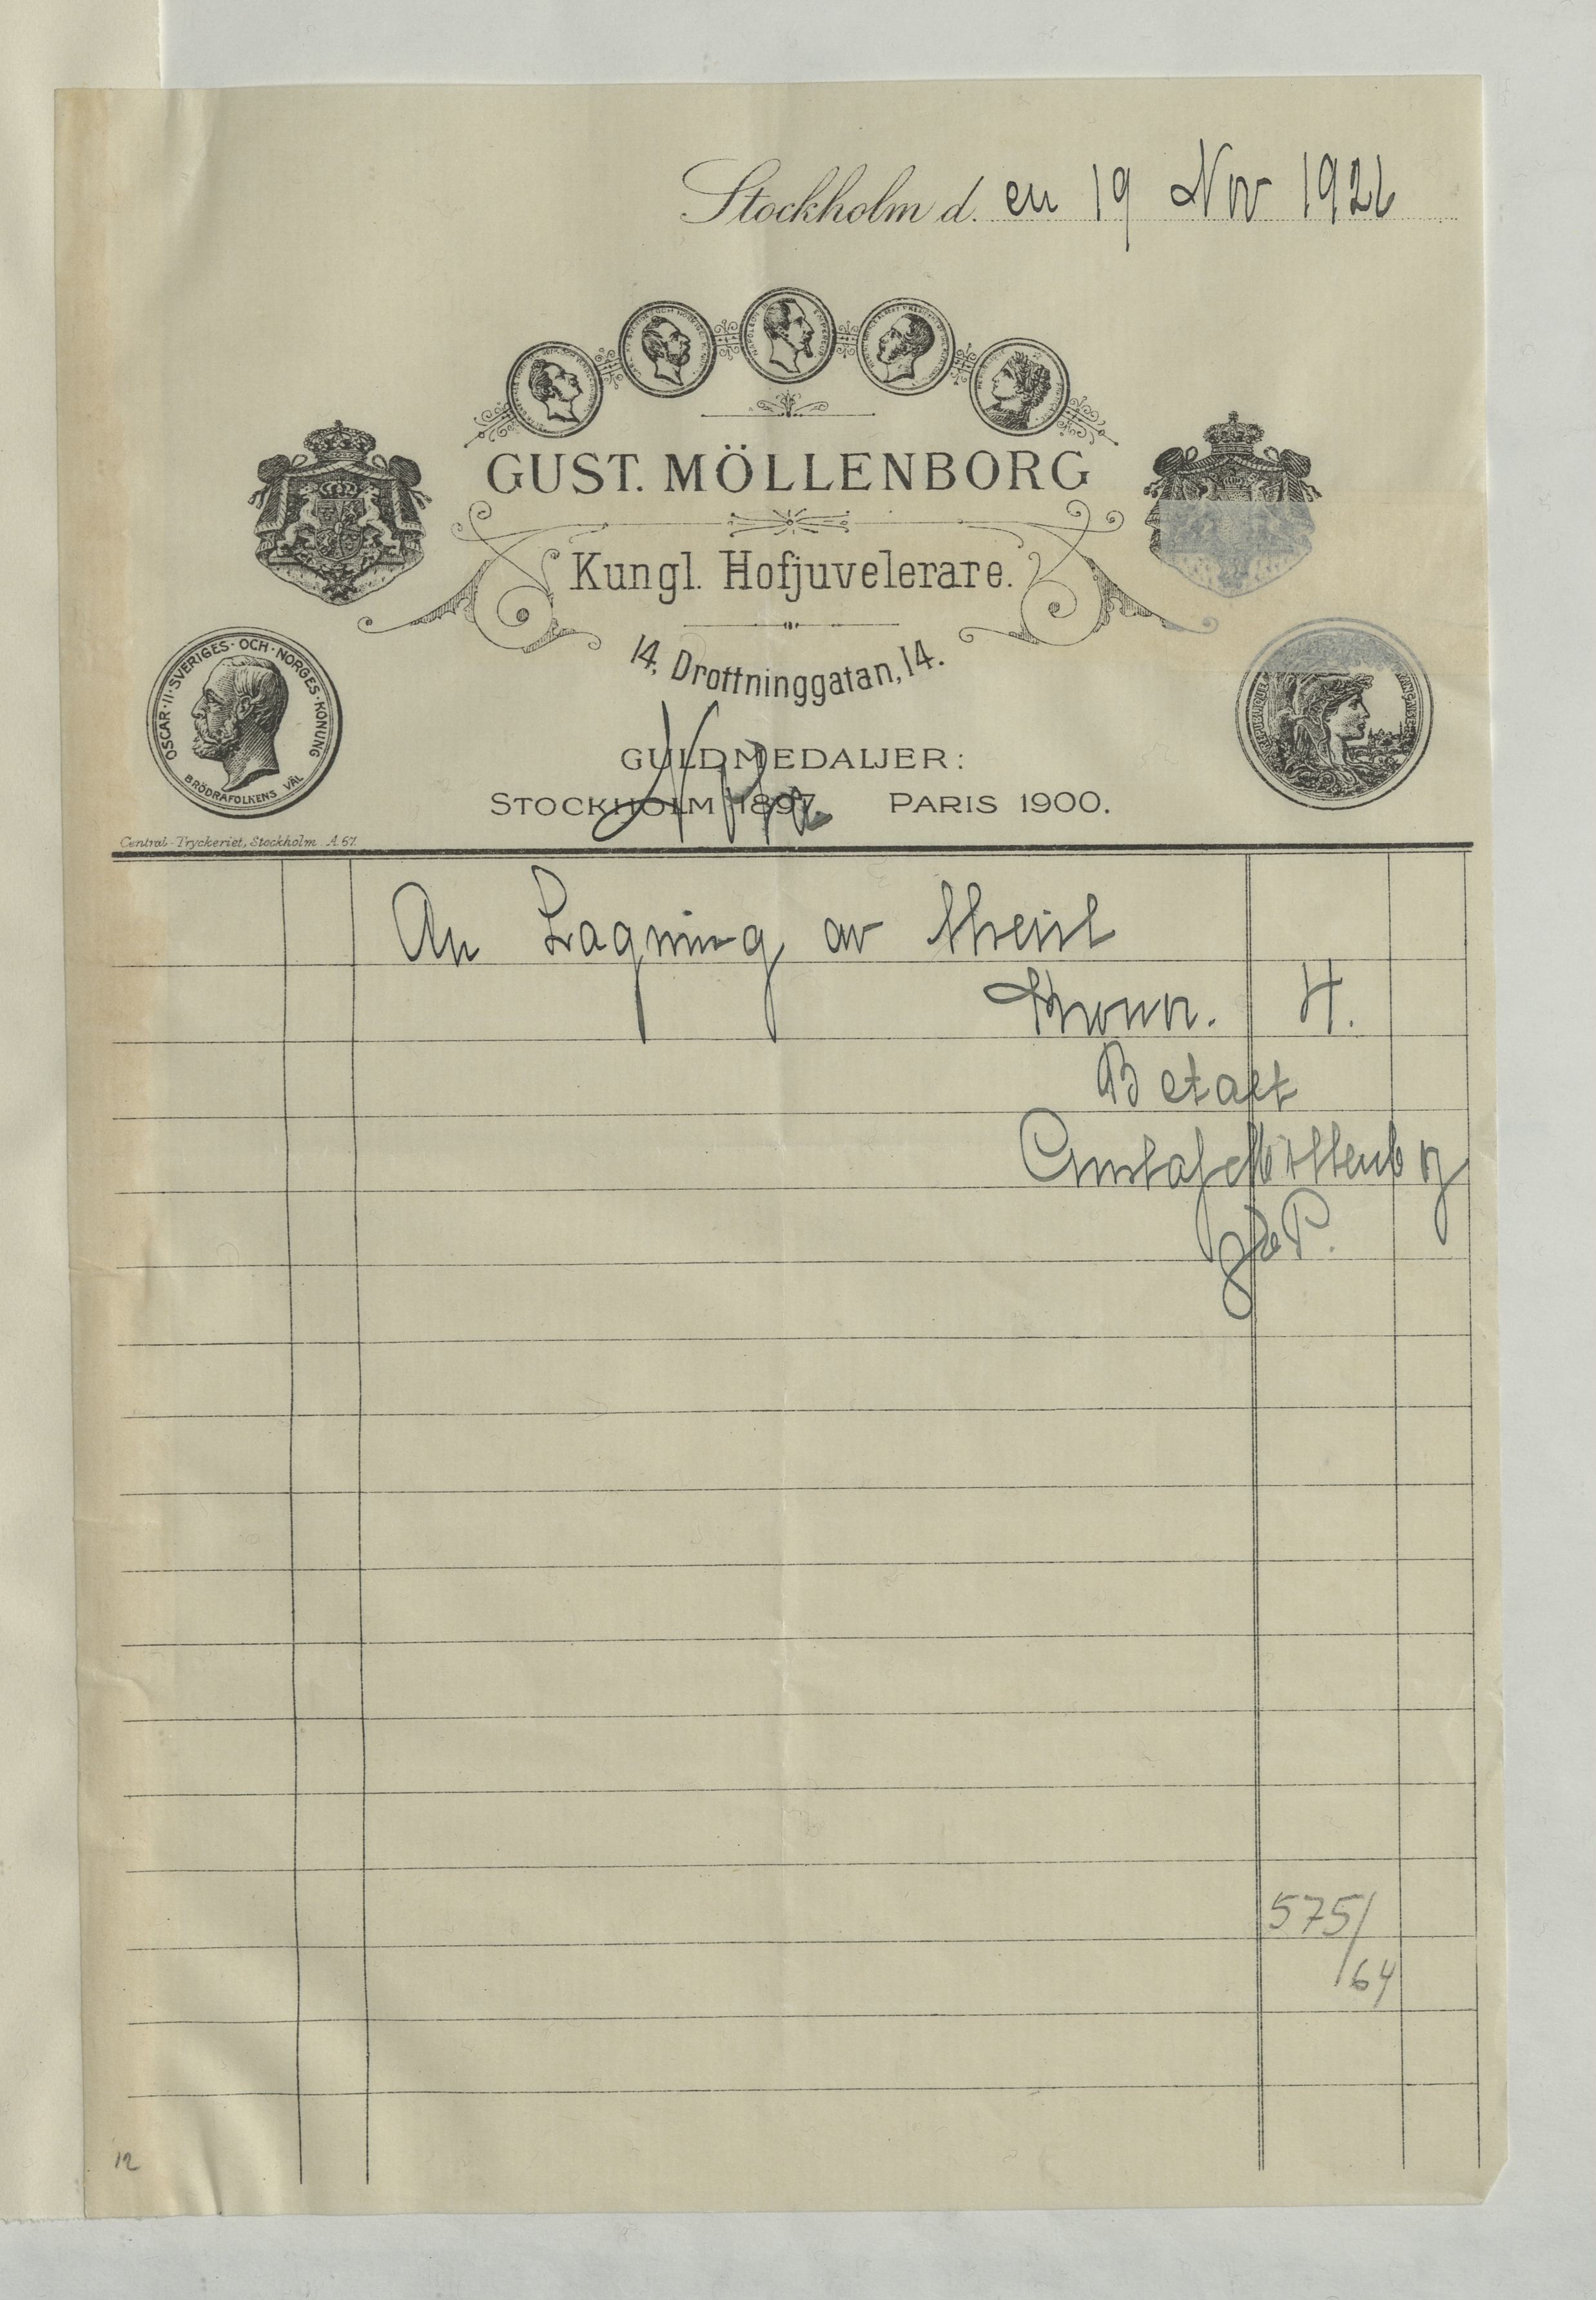 Stockholm d. en 19 Nov 1926
GUST. MÖLLENBORG
Kungl. Hofjuvelerare.
14, Drottninggatan, 14.
OSCAR · II · SVERIGES · OCH · NORGES · KONUNG
BRÖDRAFOLKENS VÄL
GULDMEDALJER:
STOCKHOLM 1897. PARIS 1900.
Central-Tryckeriet, Stockholm A.67.
An Lagning av
Kronor. 4.
Betalt
Gustaf Möllenborg
575/
64
12